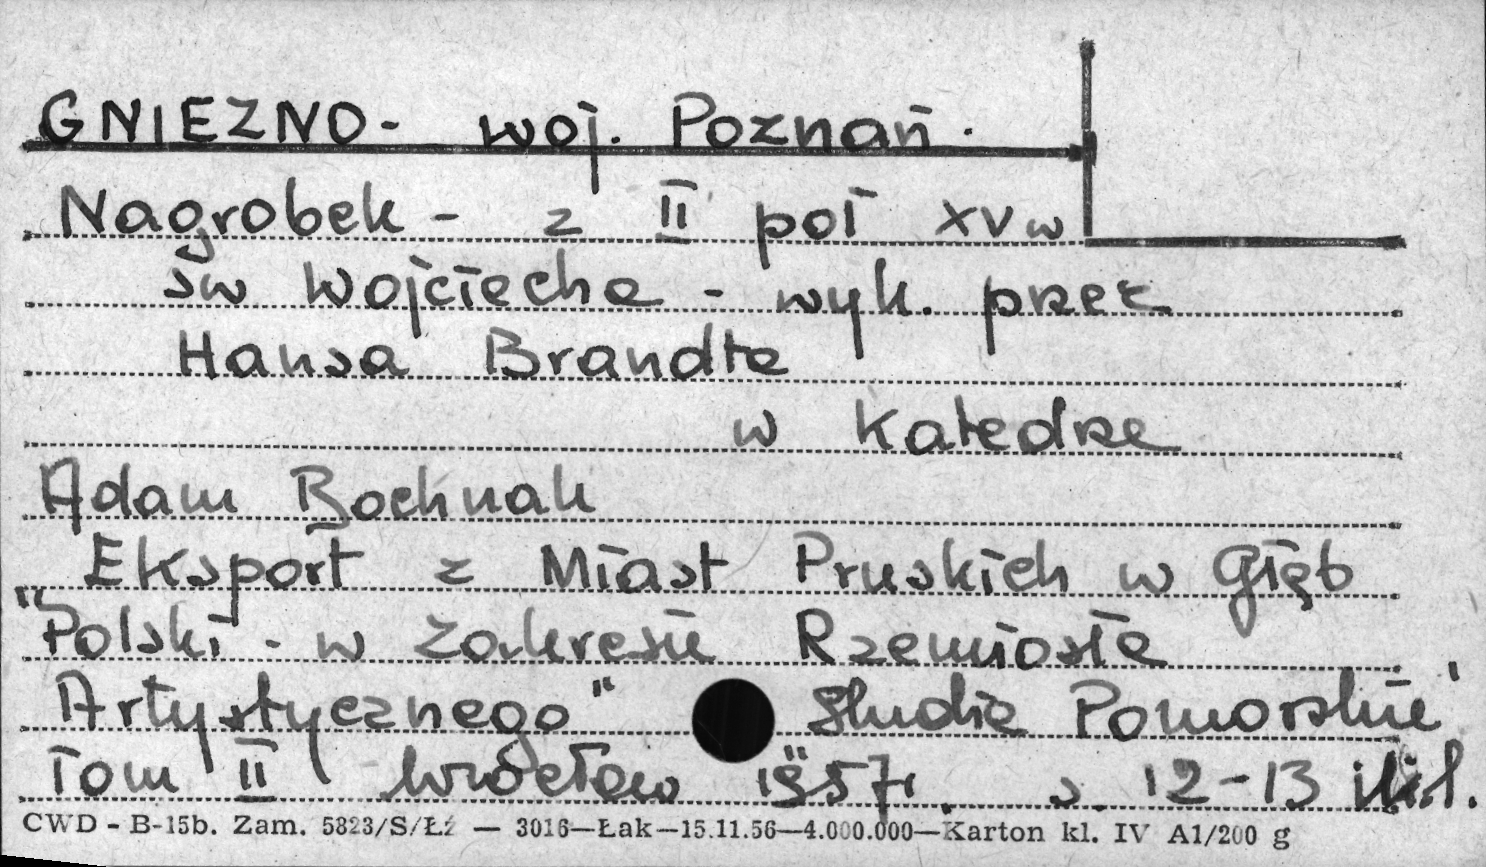 GNIEZNO - woj. Poznań.
Nagrobek - z II poł XV w
św Wojciecha - wyk. przez
Hansa Brandta
w Katedrze
Adam Bochnak
Eksport z Miast Pruskich w Głąb
"Polski - w zakresie Rzemiosła
Artystycznego" Studia Pomorskie'
Tom II Wrocław 1957r. s. 12-13
CWD - B-15b. Zam. 5823/S/Łź — 3016—Łak—15.11.56—4.000.000—Karton kl. IV A1/200 g